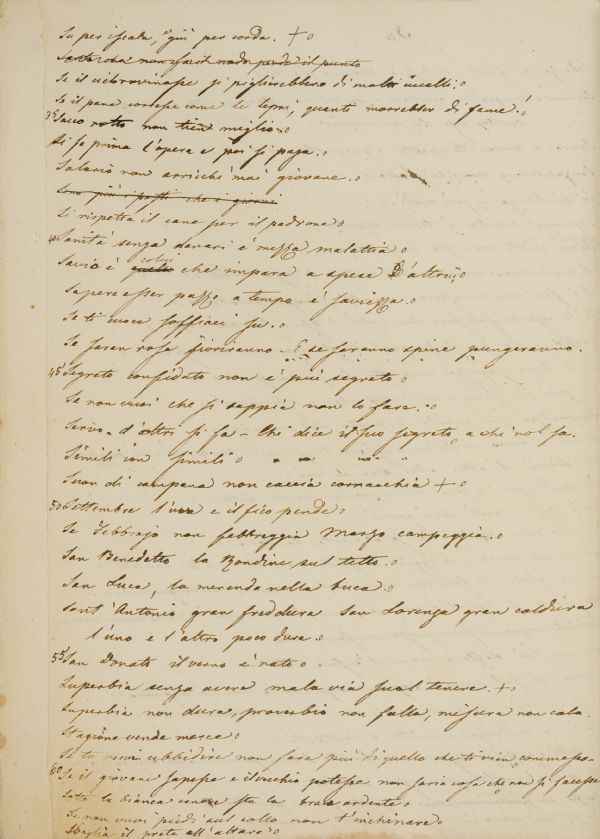 Su per iscala, giù per corda. + o
Se il ciel rovinasse si piglierebbero di molti uccelli. o
Se il pane corresse come le lepri, quanti morrebber di fame! o
35 Sacco rotto non tien miglio. o
Si fa prima l'opera e poi si paga. o
Salario non arricchì mai giovane. o
Si rispetta il cane per il padrone o
40 Sanità senza danari è mezza malattia o
colui
Savio è quello che impara a spese d'altrui o
Saper esser pazzo a tempo è saviezza. o
Se ti cuoce soffiaci su. o
Se saran rose fioriranno - E se saranno spine pungeranno.
45 Segreto confidato non è più segreto o
Se non vuoi che si sappia non lo fare. o
Servo d'altri si fa - Chi dice il suo segreto a chi nol sa.
Simili con simili o
Suon di campana non caccia cornacchia + o
50 Settembre l'uva e il fico pende o
Se Febbrajo non febbreggia Marzo campeggia. o
San Benedetto la Rondine sul tetto. o
San Luca, la merenda nella buca. o
Sant'Antonio gran freddura San Lorenzo gran caldura
l'uno e l'altro poco dura. o
55 San Donato il verno è nato o
Superbia senza avere mala via suol tenere. + o
Superbia non dura, proverbio non falla, misura non cala.
Stagione vende merce o
Se tu vuoi ubbidire non fare più di quello che ti vien commesso.
60 Se il giovane sapesse e il vecchio potesse non saria cosa che non si facesse
Sotto la bianca cenere sta la brace ardente o
Se non vuoi piedi sul collo non t'inchinare o
Sbaglia il prete all'altare o